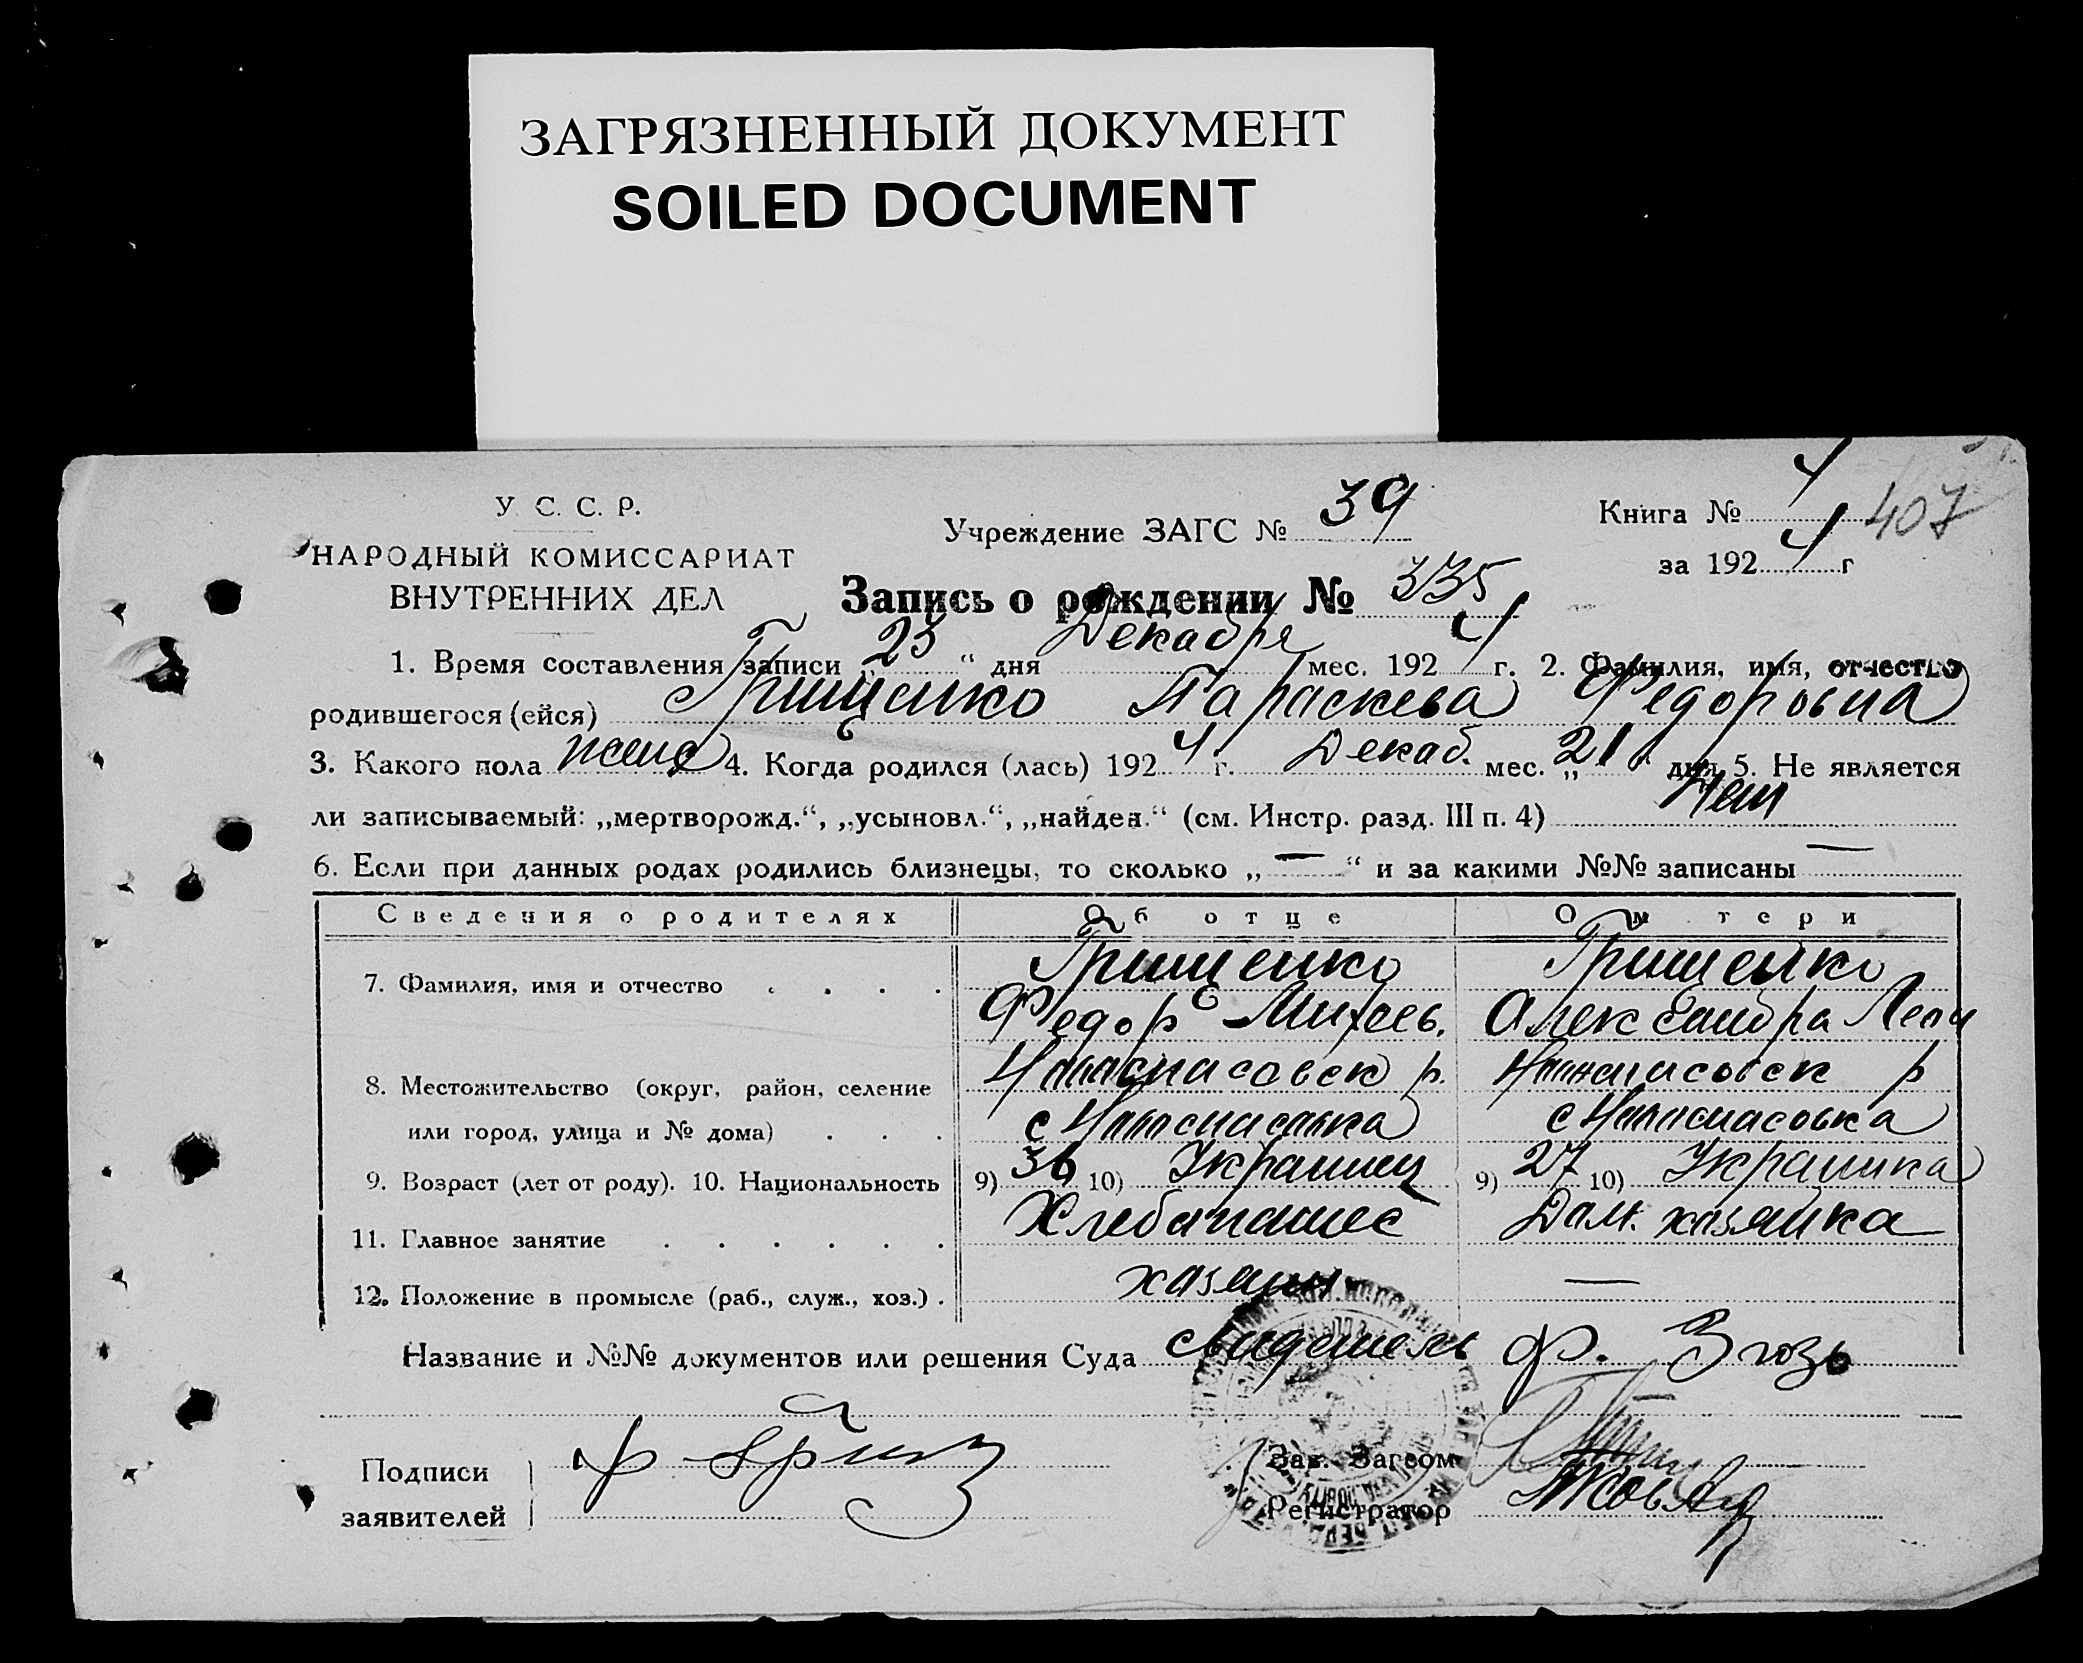 ЗАГРЯЗНЕННЫЙ ДОКУМЕНТ
SOILED DOCUMENT
У. С. С. Р.
НАРОДНЫЙ КОМИССАРИАТ
ВНУТРЕННИХ ДЕЛ
Учреждение ЗАГС № 39
Книга № 4 407
за 1924 г
Запись о рождении № 335
1. Время составления записи „23“ дня Декабря мес. 1924 г. 2. Фамилия, имя, отчество
родившегося (ейся) Грищенко Параскева Федоровна
3. Какого пола женс 4. Когда родился (лась) 1924 г. Декаб. мес. „21“ дня 5. Не является
ли записываемый: „мертворожд.“, „усыновл.“, „найден.“ (см. Инстр. разд. III п. 4) Нет
6. Если при данных родах родились близнецы, то сколько „—“ и за какими №№ записаны —
Сведения о родителях Об отце О м тери
7. Фамилия, имя и отчество Грищенко Грищенко
Федор Михеев. Александра Леон
8. Местожительство (округ, район, селение р. р
или город, улица и № дома) с с
9. Возраст (лет от роду). 10. Национальность 9) 36 10) Украинец 9) 27 10) Украинка
11. Главное занятие Хлебапашес Дом. хазяйка
12. Положение в промысле (раб., служ., хоз.) хазяин —
Название и №№ документов или решения Суда свидетель Ф. Згозь
Подписи
заявителей
Зав. Загсом
Регистратор